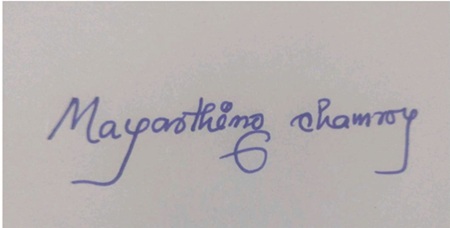 Mayarthing chamroy